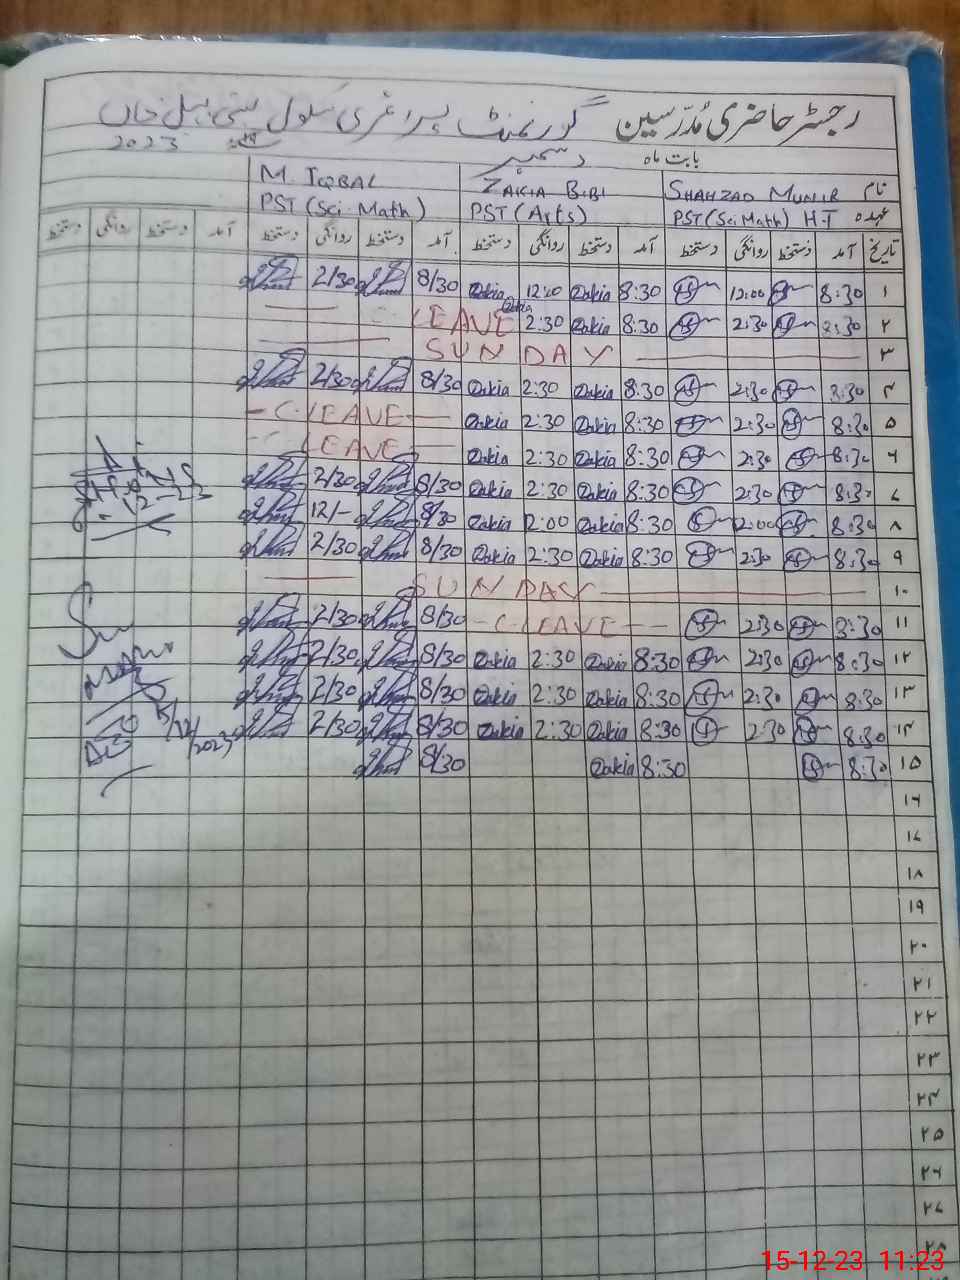 رجسٹر حاضری مُدرّسین گورنمنٹ پرائمری سکول بستی بہل خاں
بابت ماہ دسمبر 2023
نام SHAHZAD MUNIR ZAKIA BIBI M. IQBAL
عہدہ PST (Sci Math) H.T PST (Arts) PST (Sci. Math)
تاریخ آمد دستخط روانگی دستخط آمد دستخط روانگی دستخط آمد دستخط روانگی دستخط آمد دستخط روانگی دستخط
۱ 8:30 12:00 8:30 Zakia 12:00 Zakia 8/30 2/30
۲ 8:30 2:30 8:30 Zakia 2:30 Zakia LEAVE
۳ SUNDAY
۴ 8:30 2:30 8:30 Zakia 2:30 Zakia 8/30 2/30
۵ 8:30 2:30 8:30 Zakia 2:30 Zakia C-LEAVE
۶ 8:30 2:30 8:30 Zakia 2:30 Zakia LEAVE
۷ 8:30 2:30 8:30 Zakia 2:30 Zakia 8/30 2/30
۸ 8:30 2:00 8:30 Zakia 2:00 Zakia 8/30 12/-
۹ 8:30 2:30 8:30 Zakia 2:30 Zakia 8/30 2/30
۱۰ SUNDAY
۱۱ 8:30 2:30 C-LEAVE 8/30 2/30
۱۲ 8:30 2:30 8:30 Zakia 2:30 Zakia 8/30 2/30
۱۳ 8:30 2:30 8:30 Zakia 2:30 Zakia 8/30 2/30
۱۴ 8:30 2:30 8:30 Zakia 2:30 Zakia 8/30 2/30
۱۵ 8:30 8:30 Zakia 8/30
15/12/2023
۱۶
۱۷
۱۸
۱۹
۲۰
۲۱
۲۲
۲۳
۲۴
۲۵
۲۶
۲۷
۲۸
15-12-23 11:23